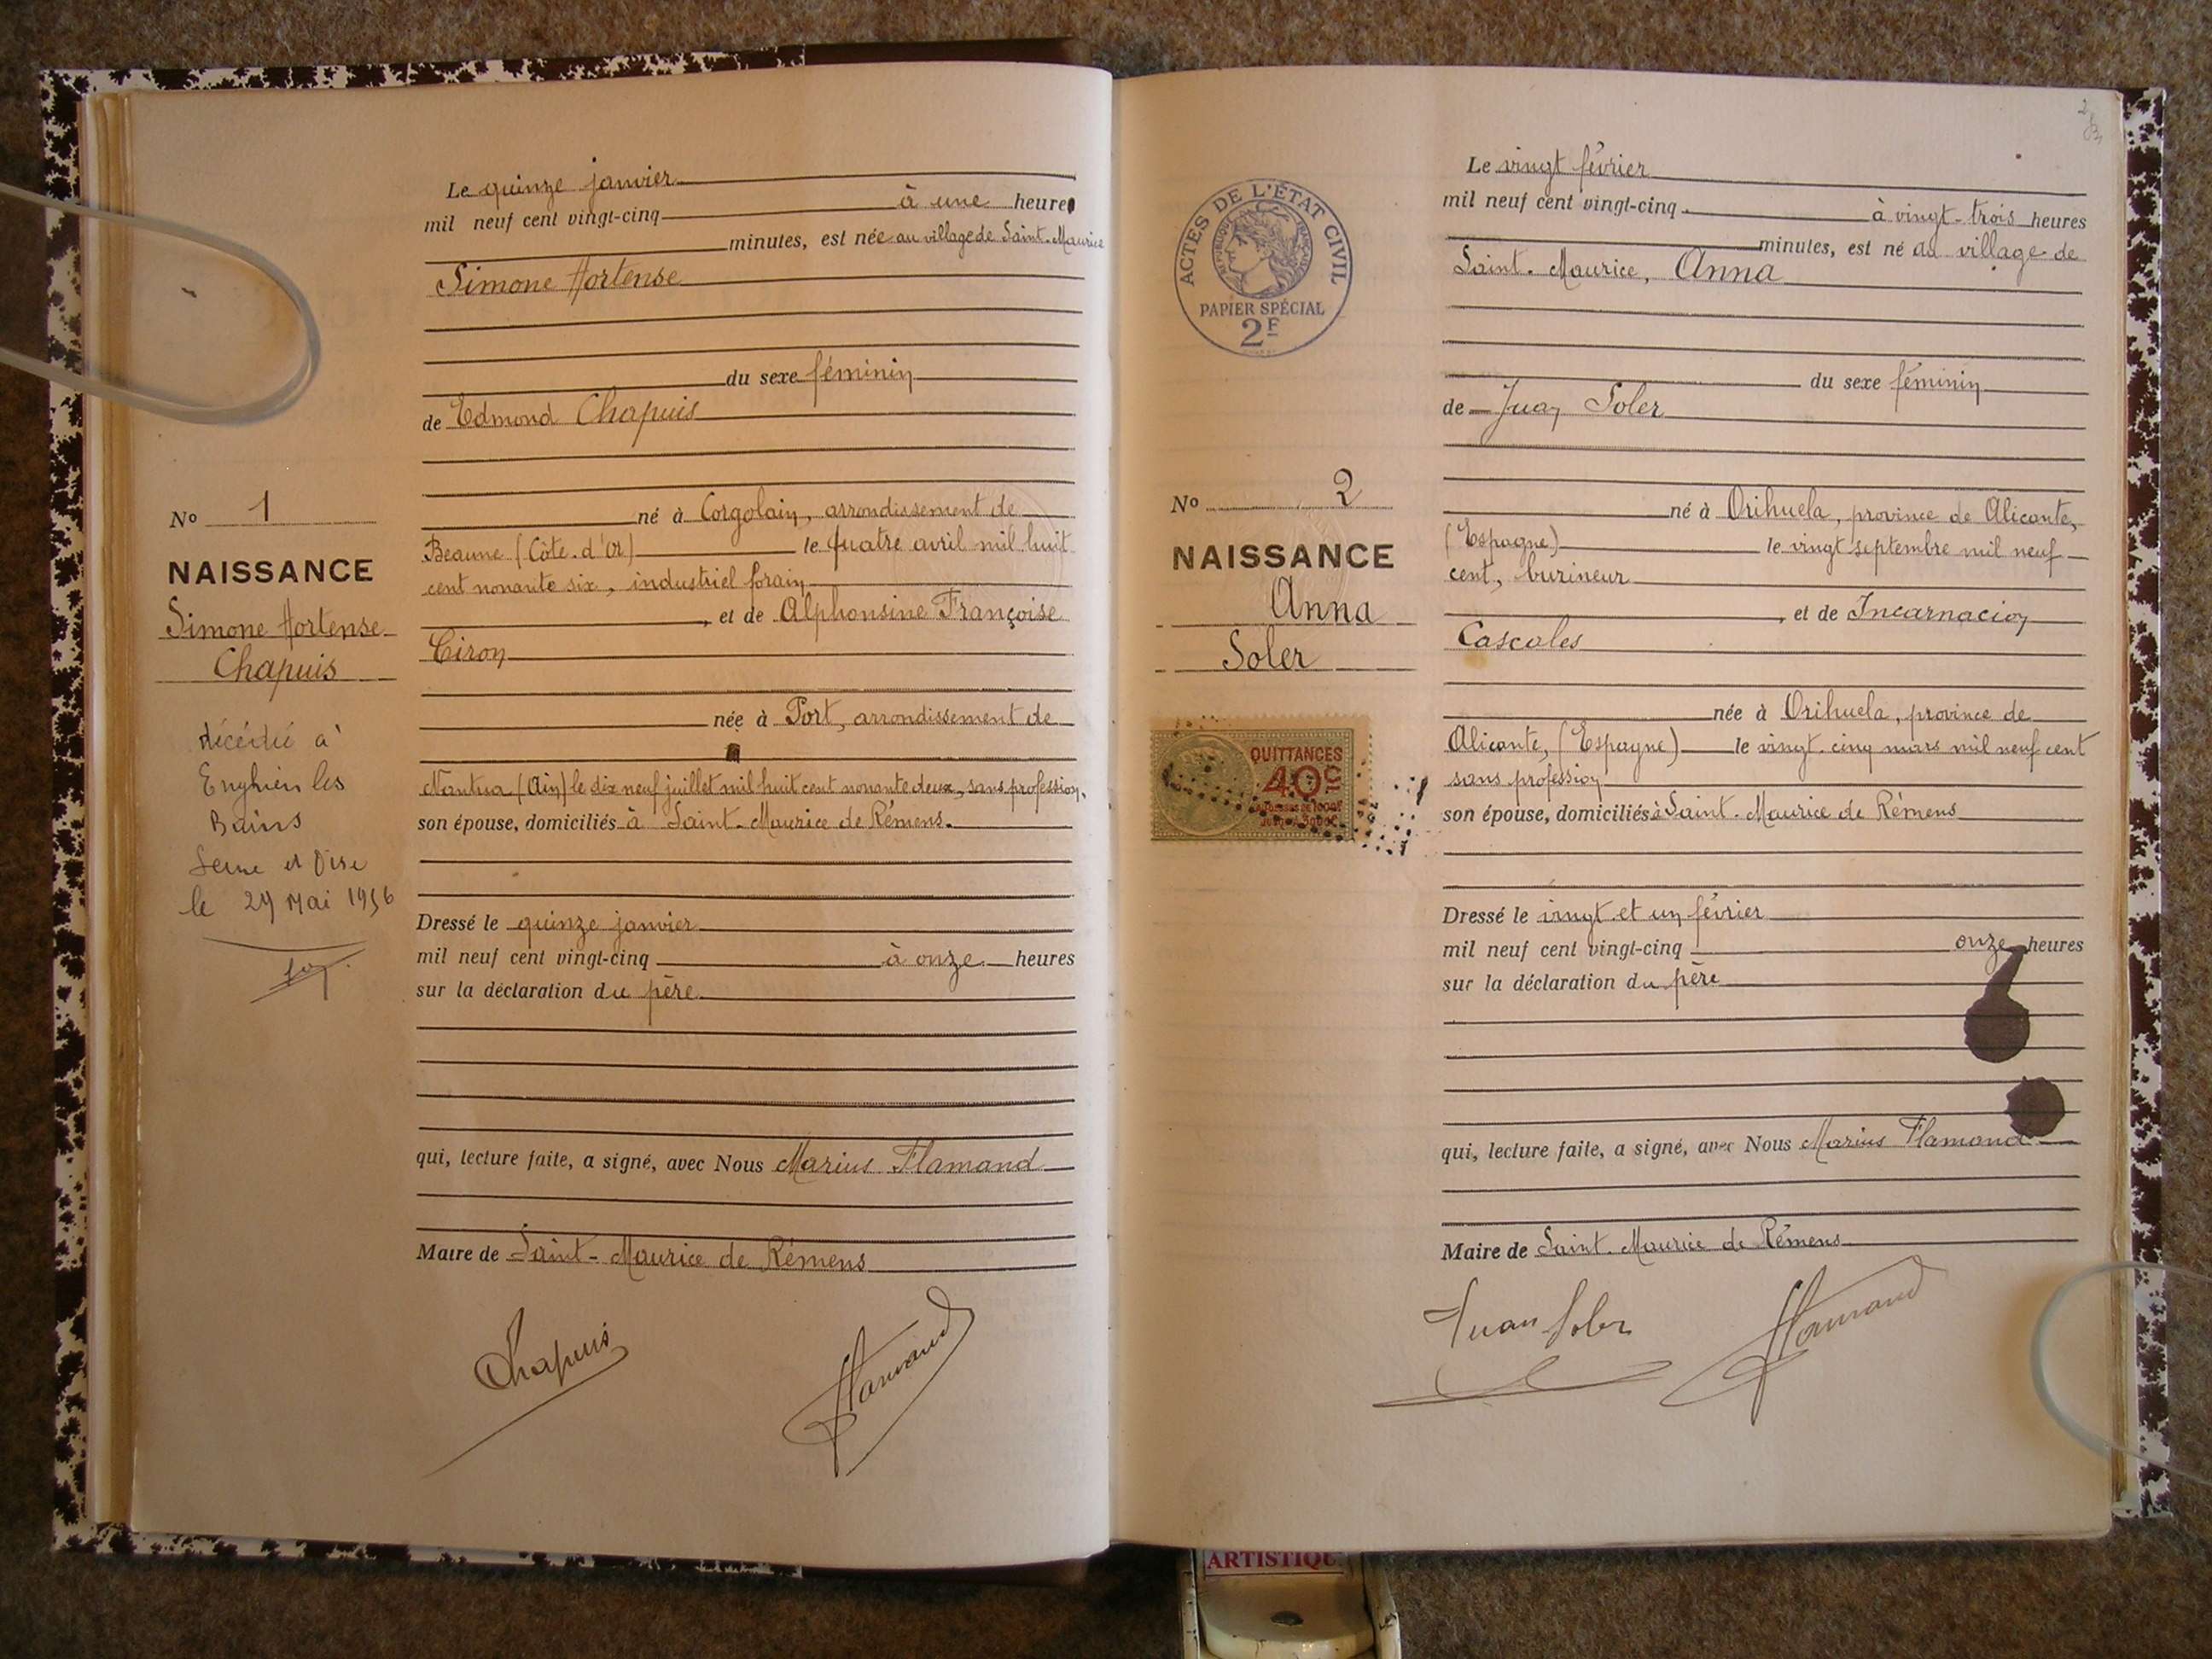 Le quinze janvier
mil neuf cent vingt-cinq à une heure
minutes, est née au village de Saint-Maurice
Simone Hortense
du sexe féminin
de Edmond Chapuis
né à Corgolain, arrondissement de
Beaune (Côte-d'or) le quatre avril mil huit
cent nonante six, industriel forain
, et de Alphonsine Françoise
Ciron
née à Port, arrondissement de
Nantua (Ain) le dix neuf juillet mil huit cent nonante deux, sans profession,
son épouse, domiciliés à Saint-Maurice de Rémens.
Dressé le quinze janvier
mil neuf cent vingt-cinq à onze heures
sur la déclaration du père
qui, lecture faite, a signé, avec Nous Marius Flamand
Maire de Saint-Maurice de Rémens
Chapuis
Flamand
No 1
NAISSANCE
Simone Hortense
Chapuis
décédée à
Enghien les
Bains
Seine et Oise
le 29 Mai 1956
ACTES DE L'ÉTAT CIVIL
RÉPUBLIQUE FRANÇAISE
PAPIER SPÉCIAL
2F
No 2
NAISSANCE
Anna
Soler
QUITTANCES
40c
Le vingt février
mil neuf cent vingt-cinq à vingt-trois heures
minutes, est né au village de
Saint-Maurice, Anna
du sexe féminin
de Juan Soler
né à Orihuela, province de Alicante,
(Espagne) le vingt septembre mil neuf
cent, burineur
, et de Incarnacion
Cascales
née à Orihuela, province de
Alicante, (Espagne) le vingt cinq mars mil neuf cent
sans profession
son épouse, domiciliés à Saint-Maurice de Rémens
Dressé le vingt et un février
mil neuf cent vingt-cinq onze heures
sur la déclaration du père
qui, lecture faite, a signé, avec Nous Marius Flamand
Maire de Saint-Maurice de Rémens
Juan Soler
Flamand
ARTISTIQU